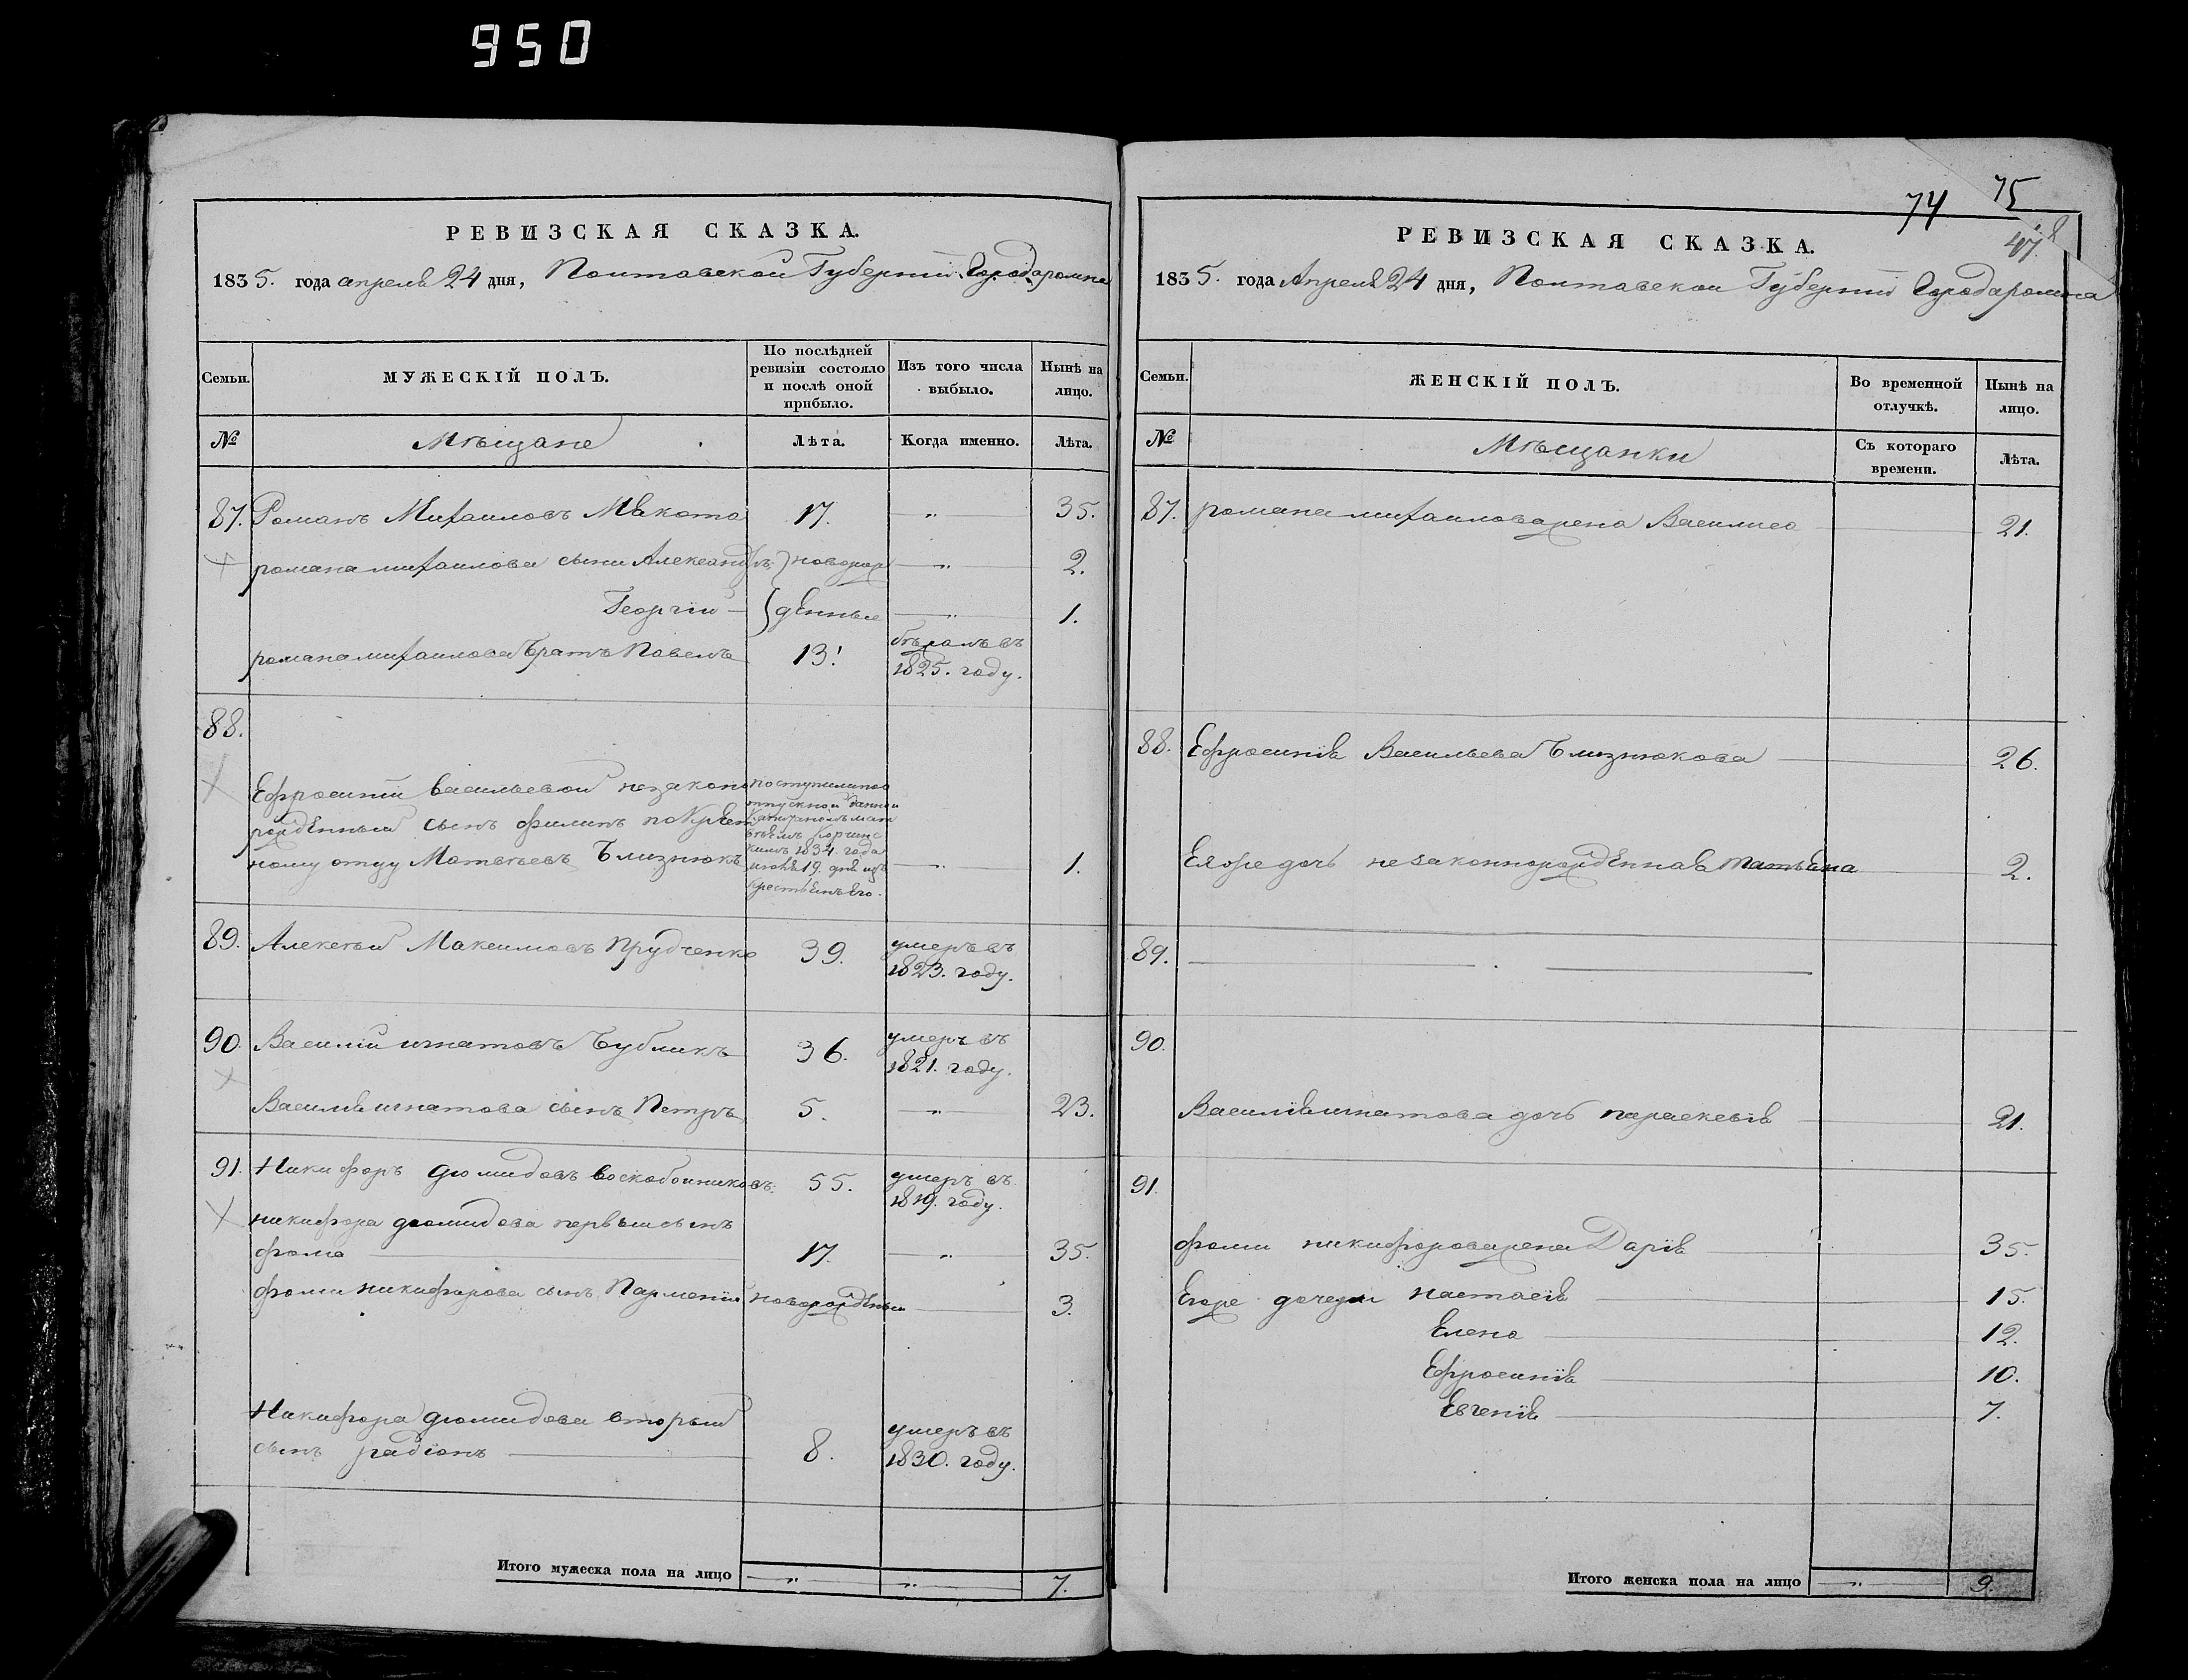 950
РЕВИЗСКАЯ СКАЗКА.
1835. года апреля 24 дня, Полтавской Губернии Города ромна
Семьи.
МУЖЕСКІЙ ПОЛЪ.
По послѣдней ревизіи состояло и послѣ оной прибыло.
Изъ того числа выбыло.
Нынѣ на лицо.
№
Мѣщане
Лѣта.
Когда именно.
Лѣта.
87. Романъ Михаиловъ Макота 17. „ 35.
романа михаилова сыни Александръ } новорож „ 2.
Георгій } денные „ 1.
романа михаилова братъ Павелъ 13. бѣжалъ въ
1825. году.
88.
Ефросиніи васильевой незаконо
рожденный сынъ филипъ по Крест
ному отцу Матвѣевъ Близнюкъ „ 1.
поступили по
отпускной данной
1834 года
19. дня
89. Алексѣй Максимовъ Прудченко 39. умеръ въ
1823. году.
90. Василій игнатовъ Бубликъ 36. умеръ въ
1821. году.
Василія игнатова сынъ Петръ 5. „ 23.
91. Никифоръ дюмидовъ воскобоиниковъ. 55. умеръ въ
1819. году.
никифора дюмидова первый сынъ
фома 17. „ 35.
фоми никифорова сынъ Парменій новорожденый 3.
Никифора дюмидова вторый
сынъ радіонъ 8. умеръ въ
1830. году.
Итого мужеска пола на лицо „ „ 7.
74 75
47.
РЕВИЗСКАЯ СКАЗКА.
1835. года Апреля 24 дня, Полтавской Губерніи Города ромна
Семьи.
ЖЕНСКІЙ ПОЛЪ.
Во временной отлучкѣ.
Нынѣ на лицо.
№
Мѣщанки
Съ котораго времени.
Лѣта.
87. романа михаилова жена Василиса 21.
88. Ефросинія Васильева Близнюкова 26.
Ея же дочь незаконнорожденная татьяна 2.
89.
90.
Василія игнатова дочь параскевія 21.
91.
фоми никифорова жена Дарія 35.
Егоже дочери настасія 15.
Елена 12.
Ефросинія 10.
Евгенія 7.
Итого женска пола на лицо „ 9.